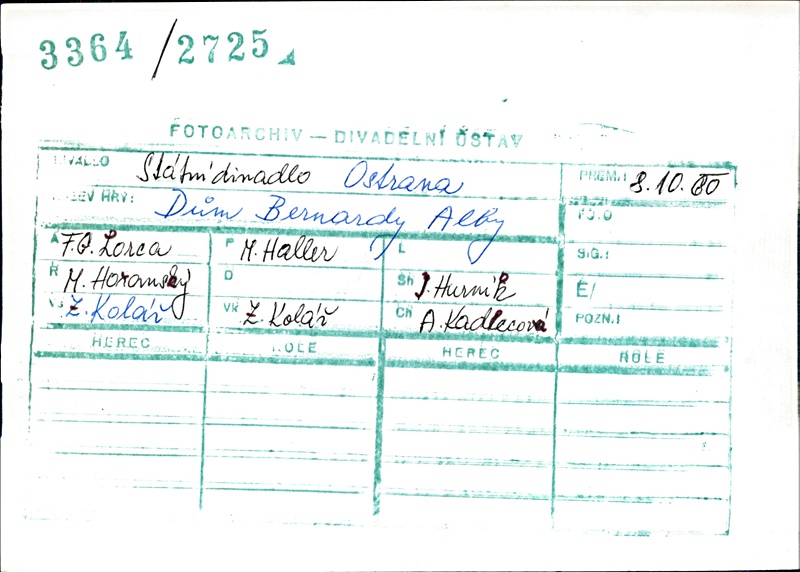 3364/2725
FOTOARCHIV — DIVADELNÍ ÚSTAV
DIVADLO Státní divadlo Ostrava PREM.: 8.10.80
NÁZEV HRY: Dům Bernardy Alby FOTO
A F.G. Lorca P M. Haller L SIG.:
R M. Horanský D Sh J. Hurník Č/
VS Z. Kolář VK Z. Kolář CH A. Kadlecová POZN.:
HEREC ROLE HEREC ROLE